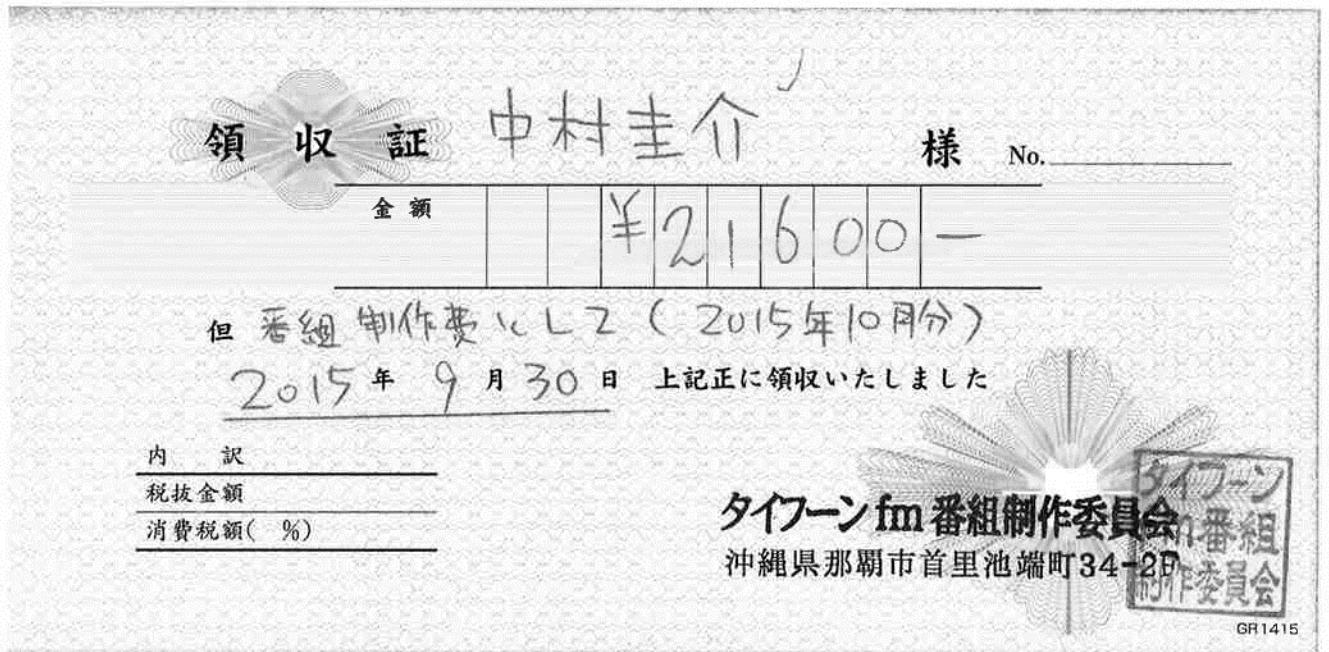 領収証 中村圭介 様 No.
金額 ¥21600-
但 番組制作費として(2015年10月分)
2015年9月30日 上記正に領収いたしました
内訳
税抜金額
消費税額( %)
タイフーンfm番組制作委員会
沖縄県那覇市首里池端町34-2F
タイフーン
fm番組
制作委員会
GR1415